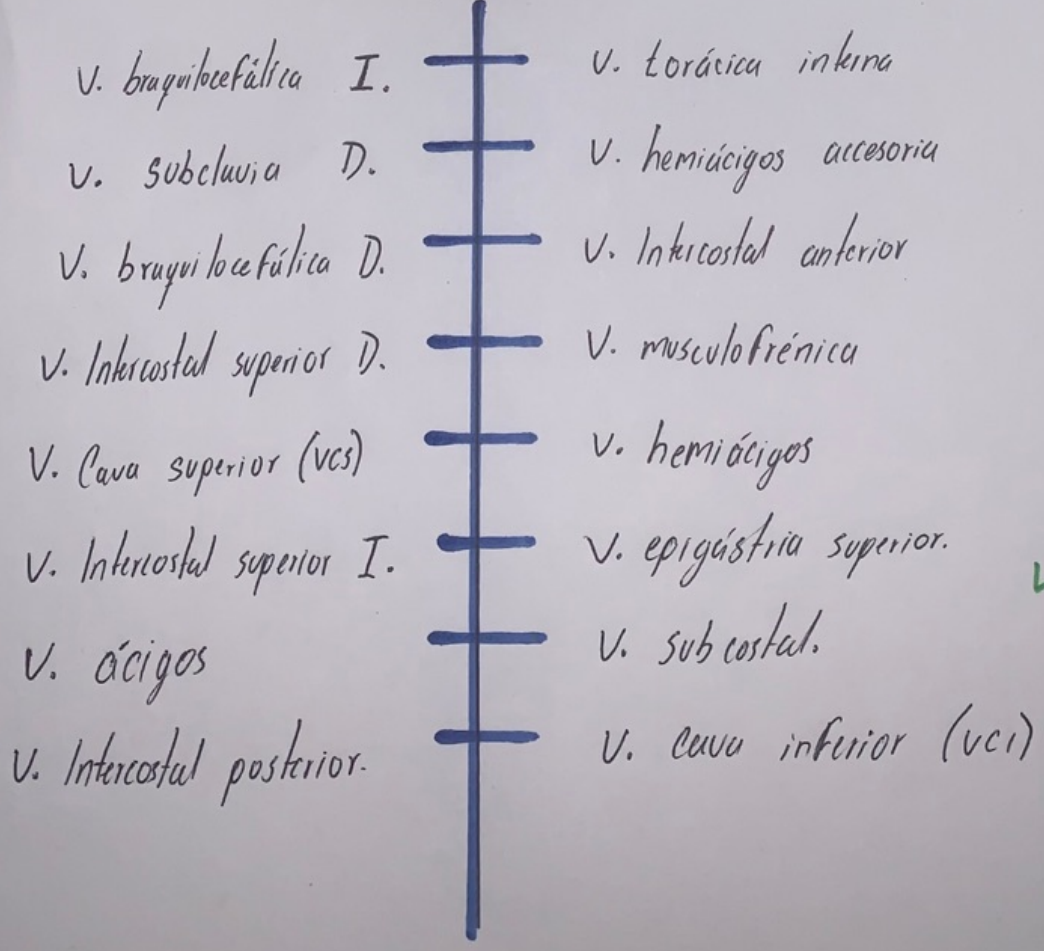 V. braquilocefálica I.
V. subclavia D.
V. braquilocefálica D.
V. Intercostal superior D.
V. Cava superior (vcs)
V. Intercostal superior I.
V. ácigos
V. Intercostal posterior.
V. torácica interna
V. hemiácigos accesoria
V. Intercostal anterior
V. musculofrénica
V. hemiácigos
V. epigástria superior.
V. subcostal.
V. cava inferior (vci)